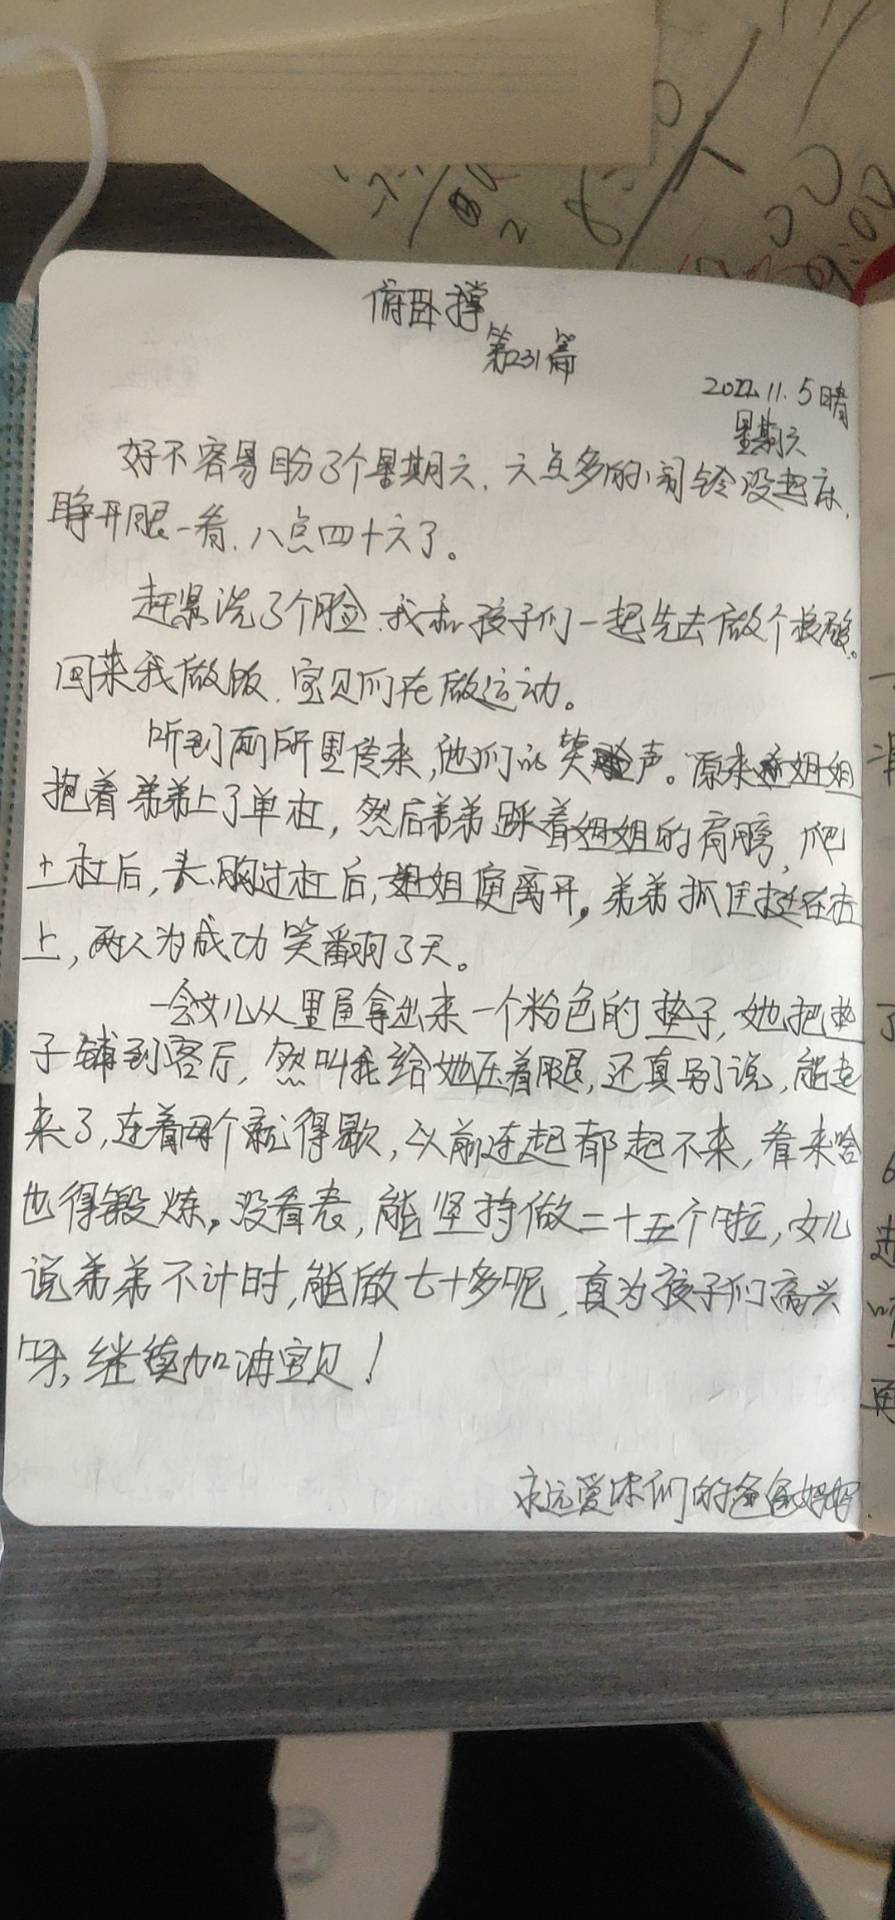 俯卧撑
第231篇
2022.11.5晴
星期六
好不容易盼了个星期六、六点多的闹铃没起床,
睁开眼一看,八点四十六了。
赶紧洗了个脸,我和孩子们一起先去做个核酸。
回来我做饭,宝贝们在做运动。
听到厕所里传来,他们的笑声。原来姐姐
抱着弟弟上了单杠,然后弟弟踩着姐姐的肩膀,爬
上杠后,头、胸过杠后,姐姐便离开,弟弟抓住挺在杠
上,两人为成功笑翻了天。
一会女儿从里屋拿出来一个粉色的垫子,她把垫
子铺到客厅,然叫我给她压着腿,还真别说,能起
来了,连着两个就得歇,以前连起都起不来,看来啥
也得锻炼。没看表,能坚持做二十五个啦,女儿
说弟弟不计时,能做七十多呢,真为孩子们高兴
呀,继续加油宝贝!
永远爱你们的爸爸妈妈